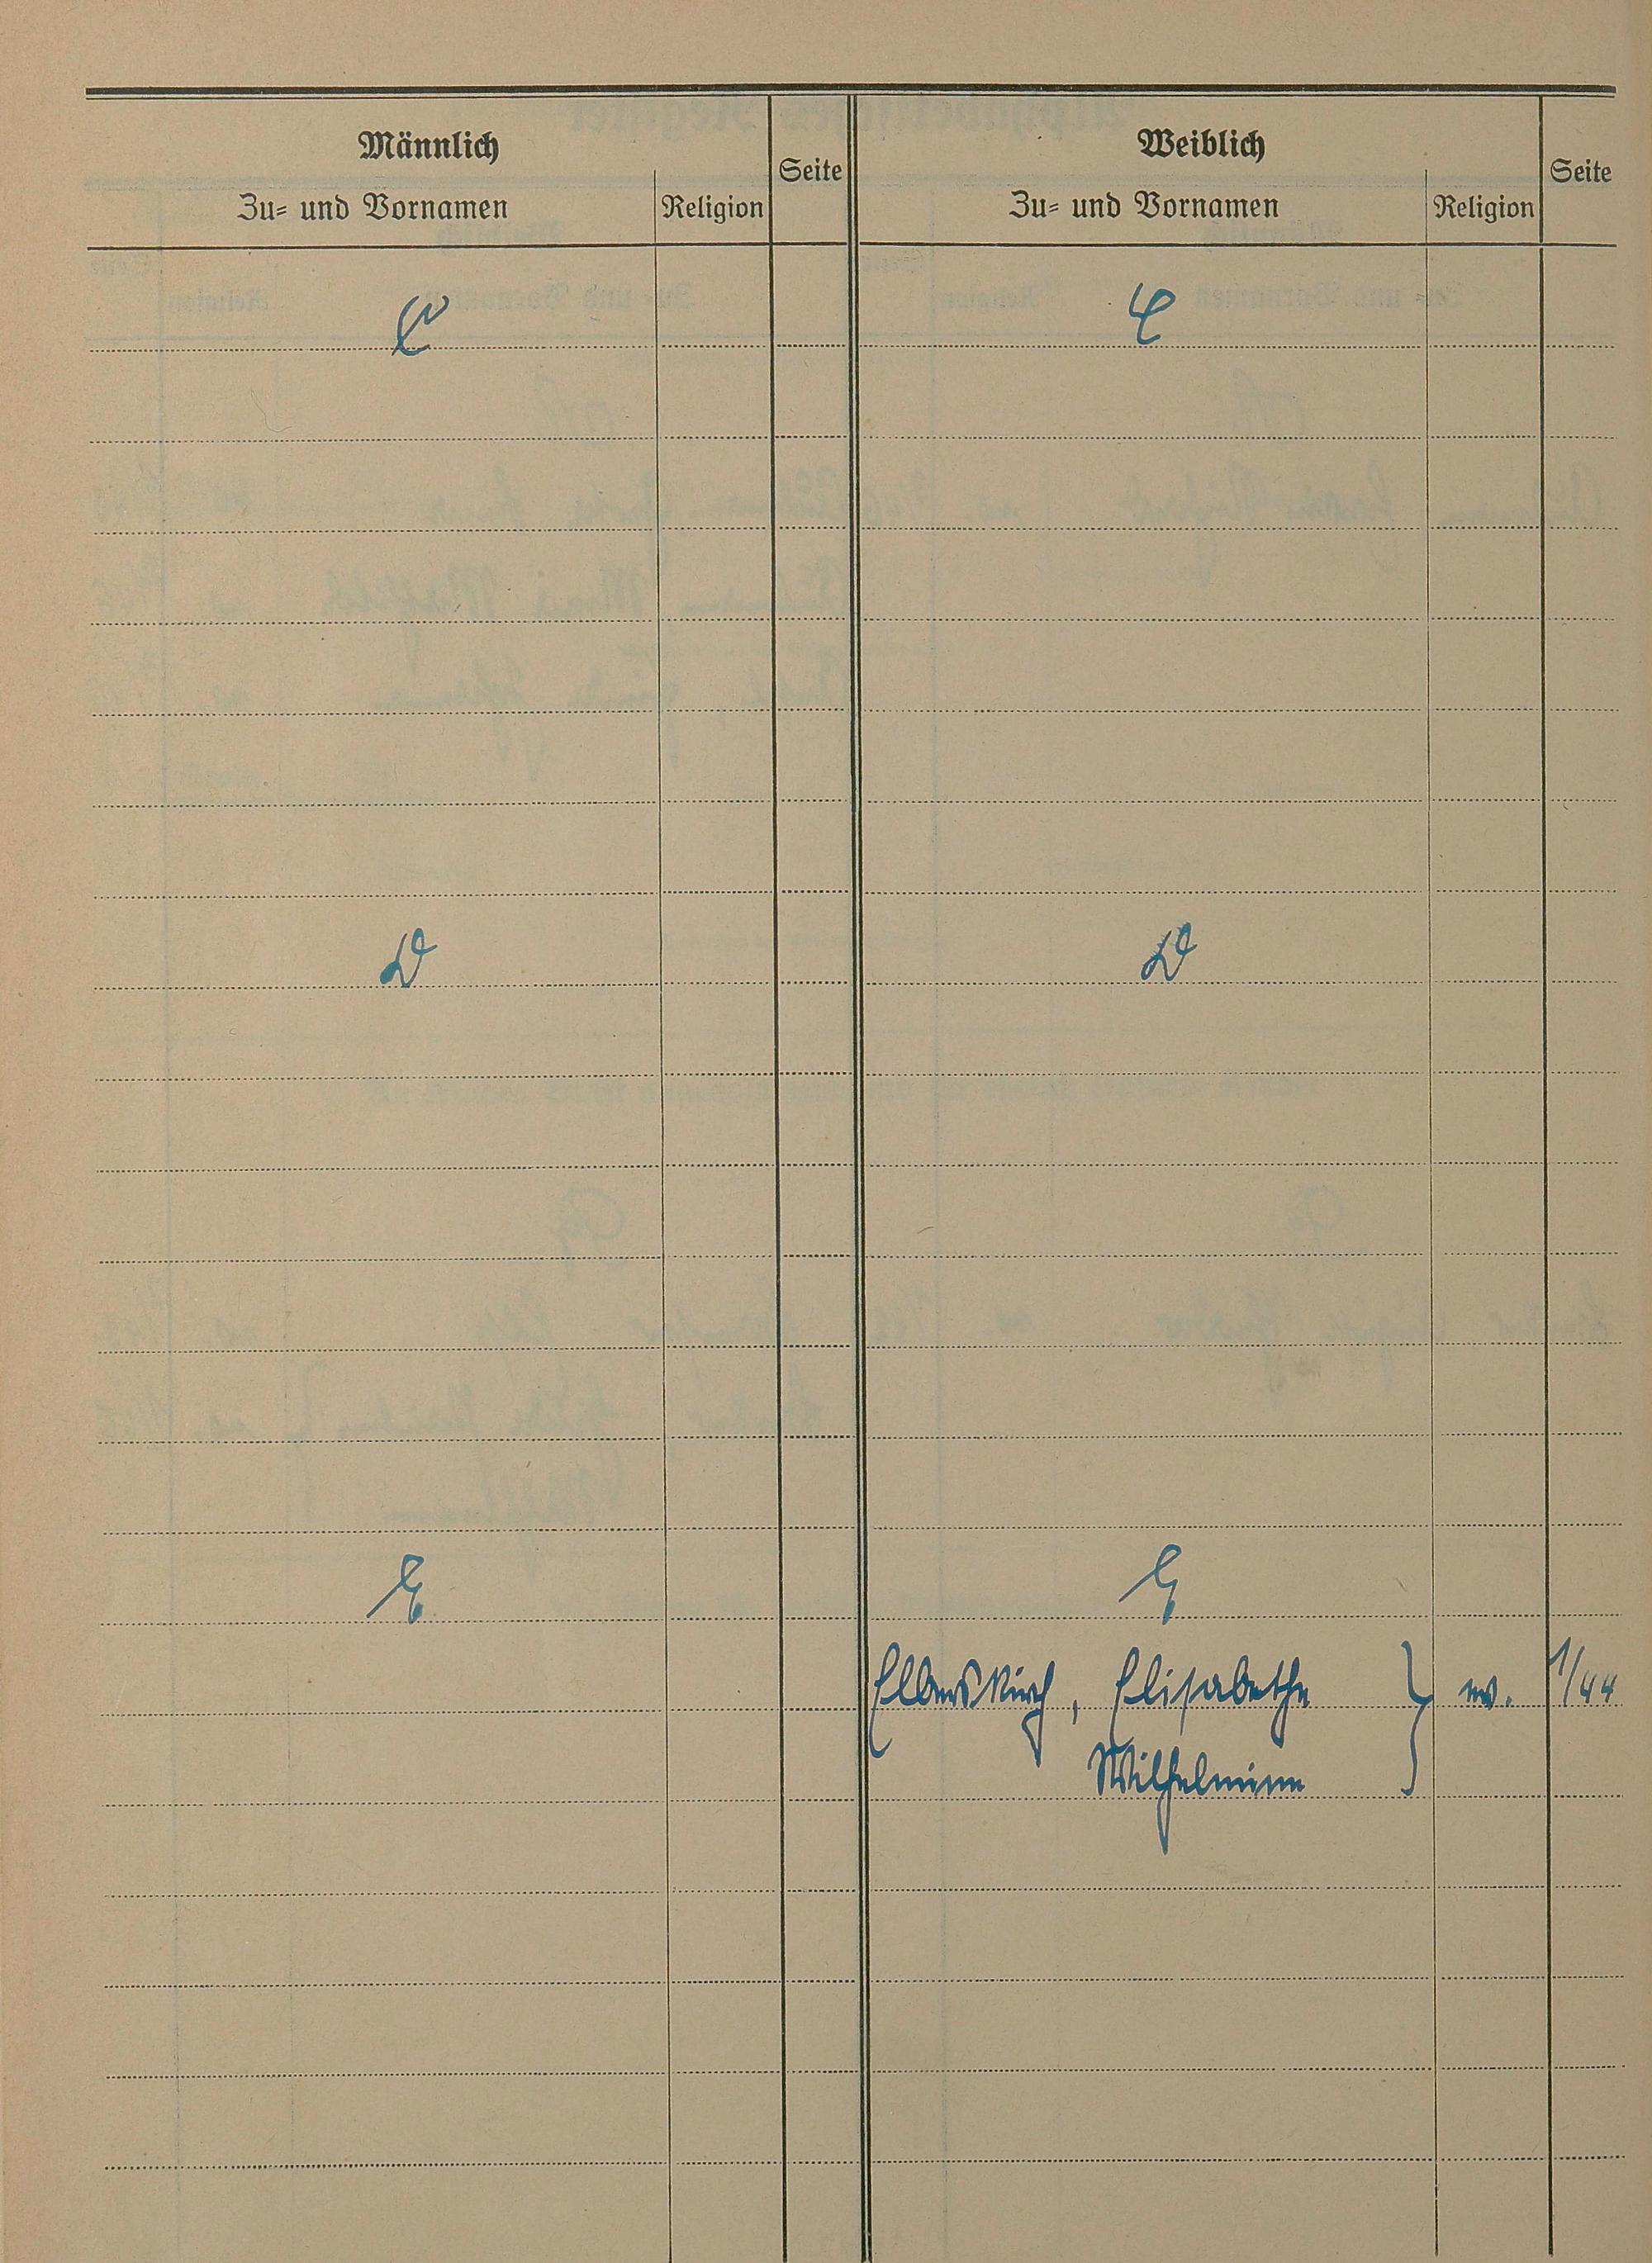 Männlich
Zu= und Vornamen
Religion
Seite
Weiblich
Zu= und Vornamen
Religion
Seite
C
C
D
D
E
E
Elberskirch, Elisabethe } ev. 1/44
Wilhelmine